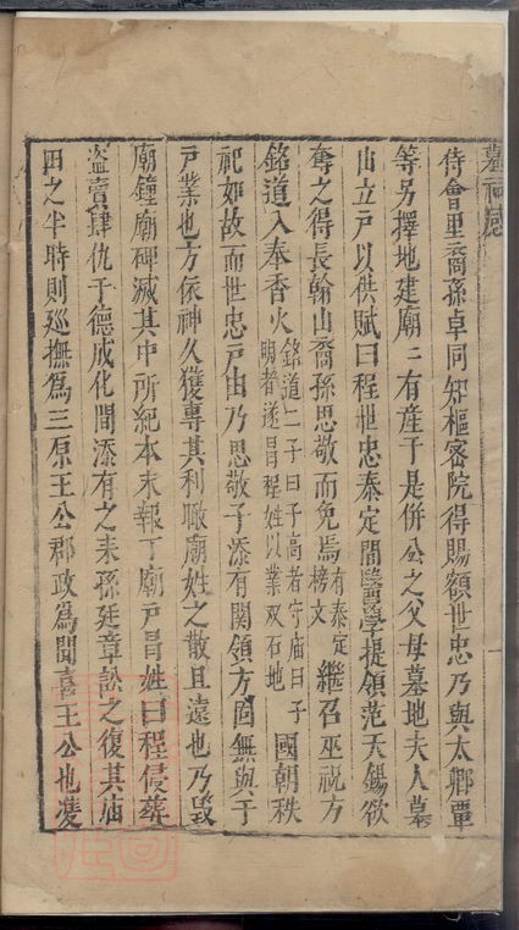 侍會里裔孫卓同知樞密院得賜額世忠乃與太卿覃
等另擇地建廟二有產于是併公之父母墓地夫人墓
由立戶以供賦曰程世忠泰定間醫學提領范天錫欲
奪之得長翰山裔孫思敬而免焉有泰定榜文繼召巫祝方
銘道入奉香火銘道二子曰子高者守庙曰子明者遂冒程姓以業双石地國朝秩
祀如故而世忠戶由乃思敬子添有関領方固無與于
戶業也方依神久獲專其利瞰廟姓之散且遠也乃毀
廟鐘廟碑滅其中所紀本末報丁廟戶冒姓曰程侵葬
盗賣肆仇于德成化間添有之耒孫廷章訟之復其庙
田之半時則廵撫爲三原王公郡政爲聞喜王公也凌